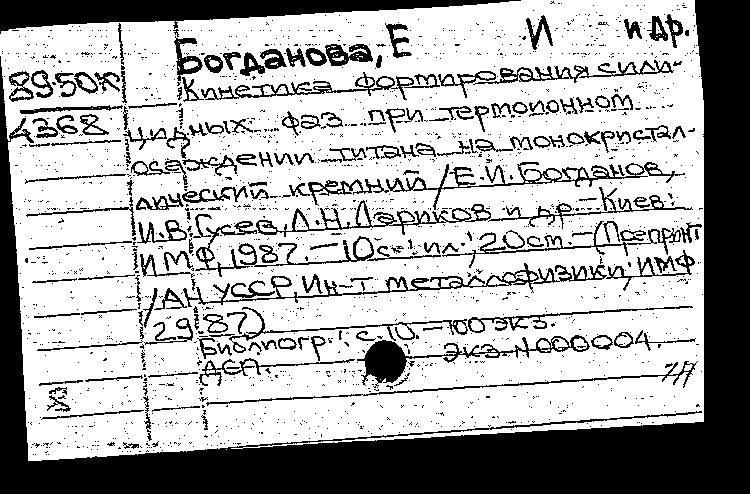 Богданова, Е И и др.
89-50К
4368
Кинетика формирования сили-
цидных фаз при термоионном
осаждении титана на монокристал-
лический кремний / Е.И. Богданов,
И.В. Гусев, Л.Н. Лариков и др. - Киев:
ИМФ, 1987. - 10с.: ил.; 20 см. - (Препринт
/ АН УССР, Ин-т металлофизики; ИМФ
29 87)
Библиогр.: с. 10. - 100 экз.
ДСП. Экз. N 000004.
8